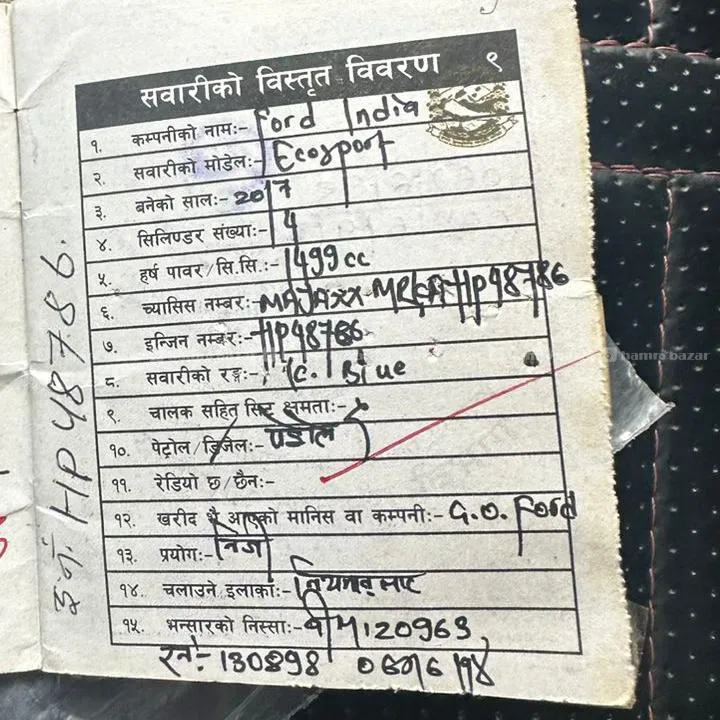 सवारीको विस्तृत विवरण ९
१. कम्पनीको नाम:- Ford India
२. सवारीको मोडेल:- Ecosport
३. बनेको साल:- 2017
४. सिलिण्डर संख्या:- 4
५. हर्ष पावर/सि.सि.:- 1499cc
६. च्यासिस नम्बर:- MAJAXX HP48786
७. इन्जिन नम्बर:- HP48786
८. सवारीको रङ्ग:- Blue
९. चालक सहित सिट क्षमता:-
१०. पेट्रोल/डिजेल:-
११. रेडियो छ/छैन:-
१२. खरीद भै आएको मानिस वा कम्पनी:- G.O. Ford
१३. प्रयोग:- निजी
१४. चलाउने इलाका:-
१५. भन्सारको निस्सा:- M120963
130898
इ.नं. HP 48786.
hamro bazar